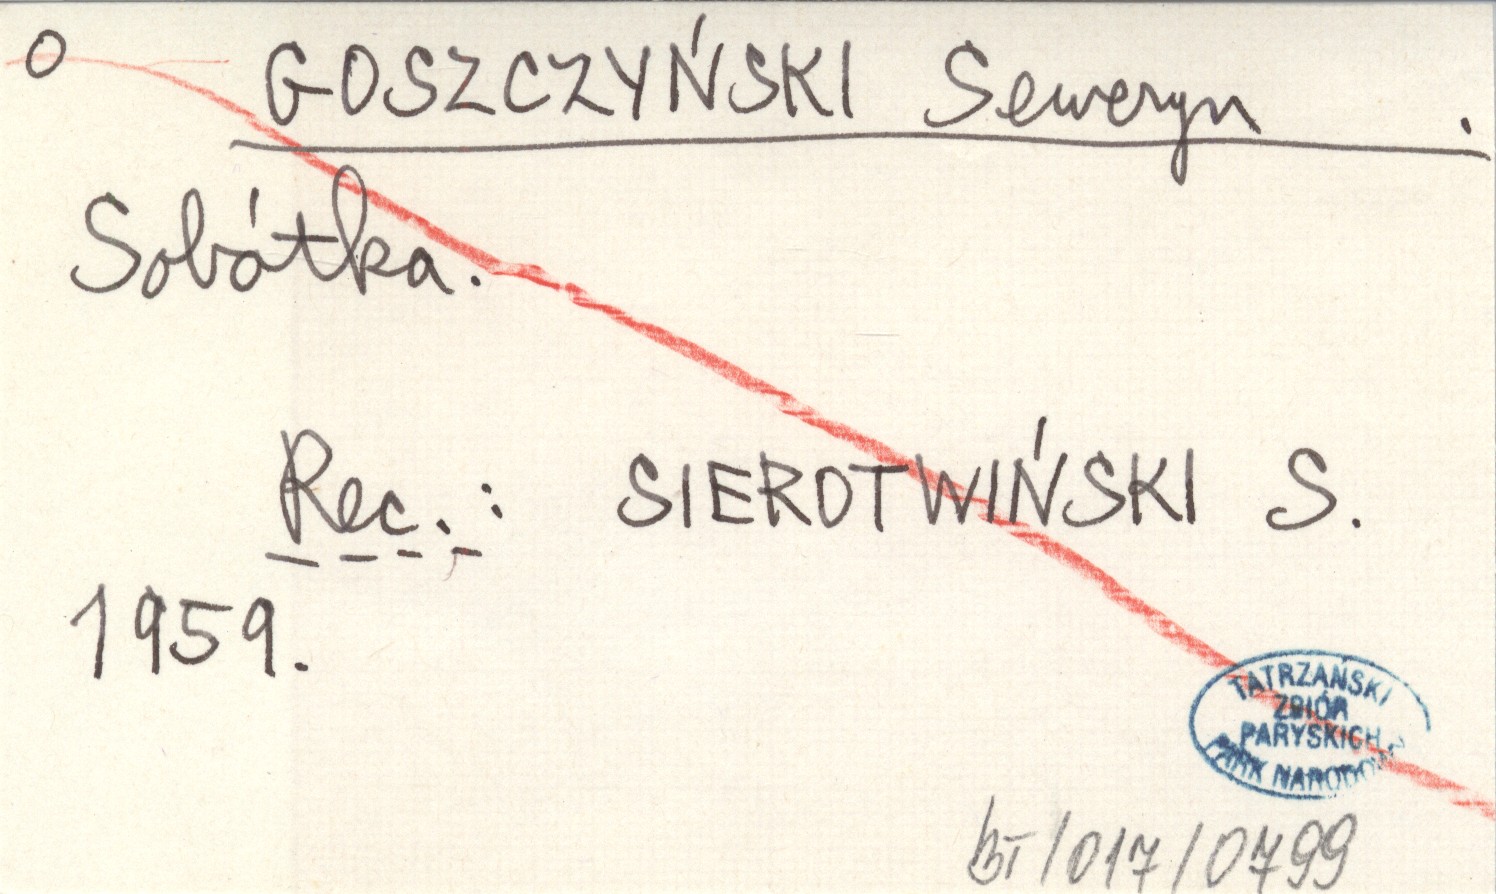 O GOSZCZYŃSKI Seweryn .
Sobótka.
Rec. : SIEROTWIŃSKI S.
1959.
TATRZAŃSKI
ZBIÓR
PARYSKICH
PARK NARODOWY
BT/017/0799